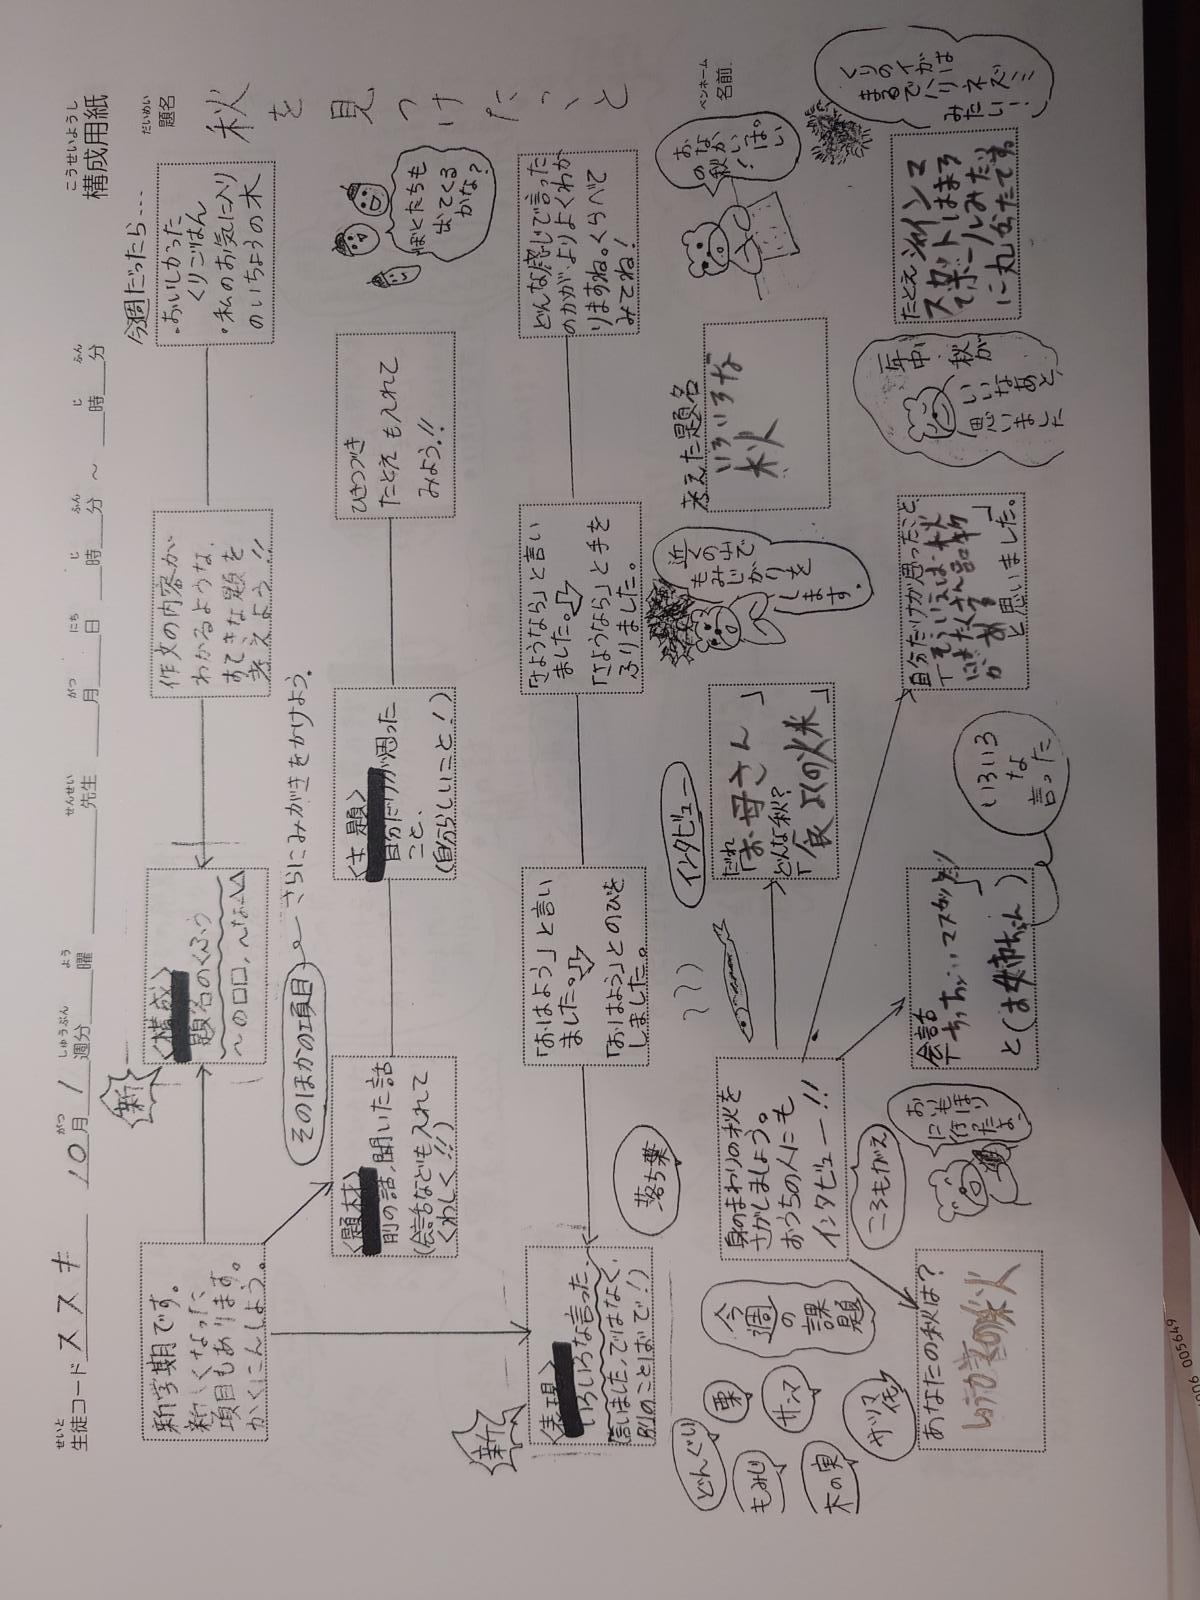 こうせいようし
構成用紙
せいと
生徒コード ススキ
がつ
10月
しゅうぶん
1週分
よう
曜
せんせい
先生
がつ
月
にち
日
じ
時
ふん
分
～
じ
時
ふん
分
だいめい
題名
秋を見つけたこと
ペンネーム
名前
新学期です。
新しくなった
項目もあります。
かくにんしよう。
新
<構成>
題名のくふう
～の口口、～な△△
作文の内容が
わかるような、
すてきな題を
考えよう!!
今週だったら…
・おいしかった
くりごはん
・私のお気に入り
のいちょうの木
そのほかの項目
さらにみがきをかけよう。
<題材>
前の話、聞いた話
(会話なども入れて
くわしく!!!)
<主題>
自分だけが思った
こと、
(自分らしいこと!)
ひきつづき
たとえも入れて
みよう!!
ぼくたちも
出てくる
かな?
新
<表現>
いろいろな言った、
言いました、ではなく、
別のことばで!)
「おはよう」と言い
ました。
「おはよう」とのびを
しました。
「さようなら」と言い
ました。
「さようなら」と手を
ふりました。
どんな感じで言った
のかが、よりよくわか
りますね。くらべて
みてね!
今週
の
課題
どんぐり
栗
もみじ
サンマ
木の実
サツマイモ
落ち葉
ころもがえ
身のまわりの秋を
さがしましょう。
おうちの人にも
インタビュー!!
インタビュー
だれ
「お母さん」
どんな秋?
「食よくの秋」
近くの山で
もみじがりを
します。
考えた題名
いろいろな
秋
おなかいっぱい
の秋!
くりのイガが
まるで
ハリネズミ
みたい!
あなたの秋は?
しょうがきの秋
おにいも
ほり
行った
よ
会話
と(お姉ちゃん)
いろいろ
な
言った
自分だけが思ったこと
と思いました。
一年中、
秋が
いいなあと
思いました
たとえ
シャインマ
スカットはまる
でボールみたい
に丸かったです